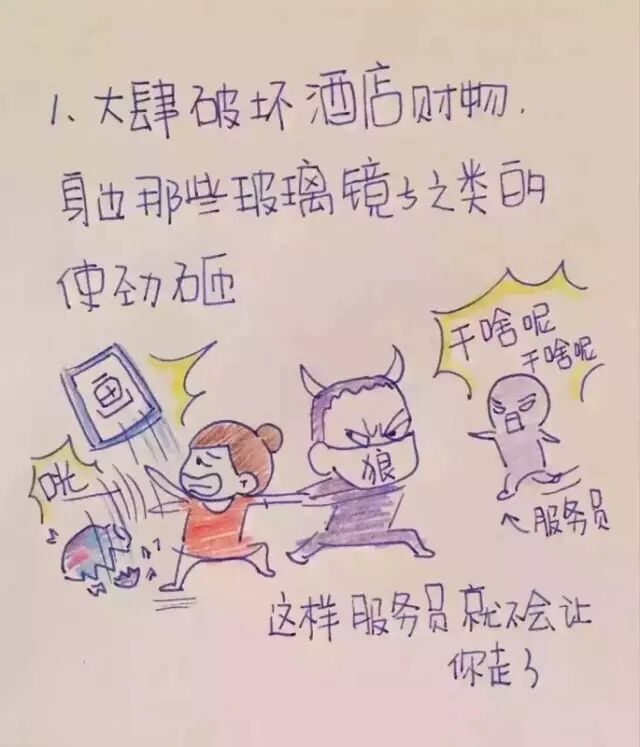 1、大肆破坏酒店财物.
身边那些玻璃镜子之类的
使劲砸
画
咣
狼
干啥呢
干啥呢
服务员
这样服务员就不会让
你走了